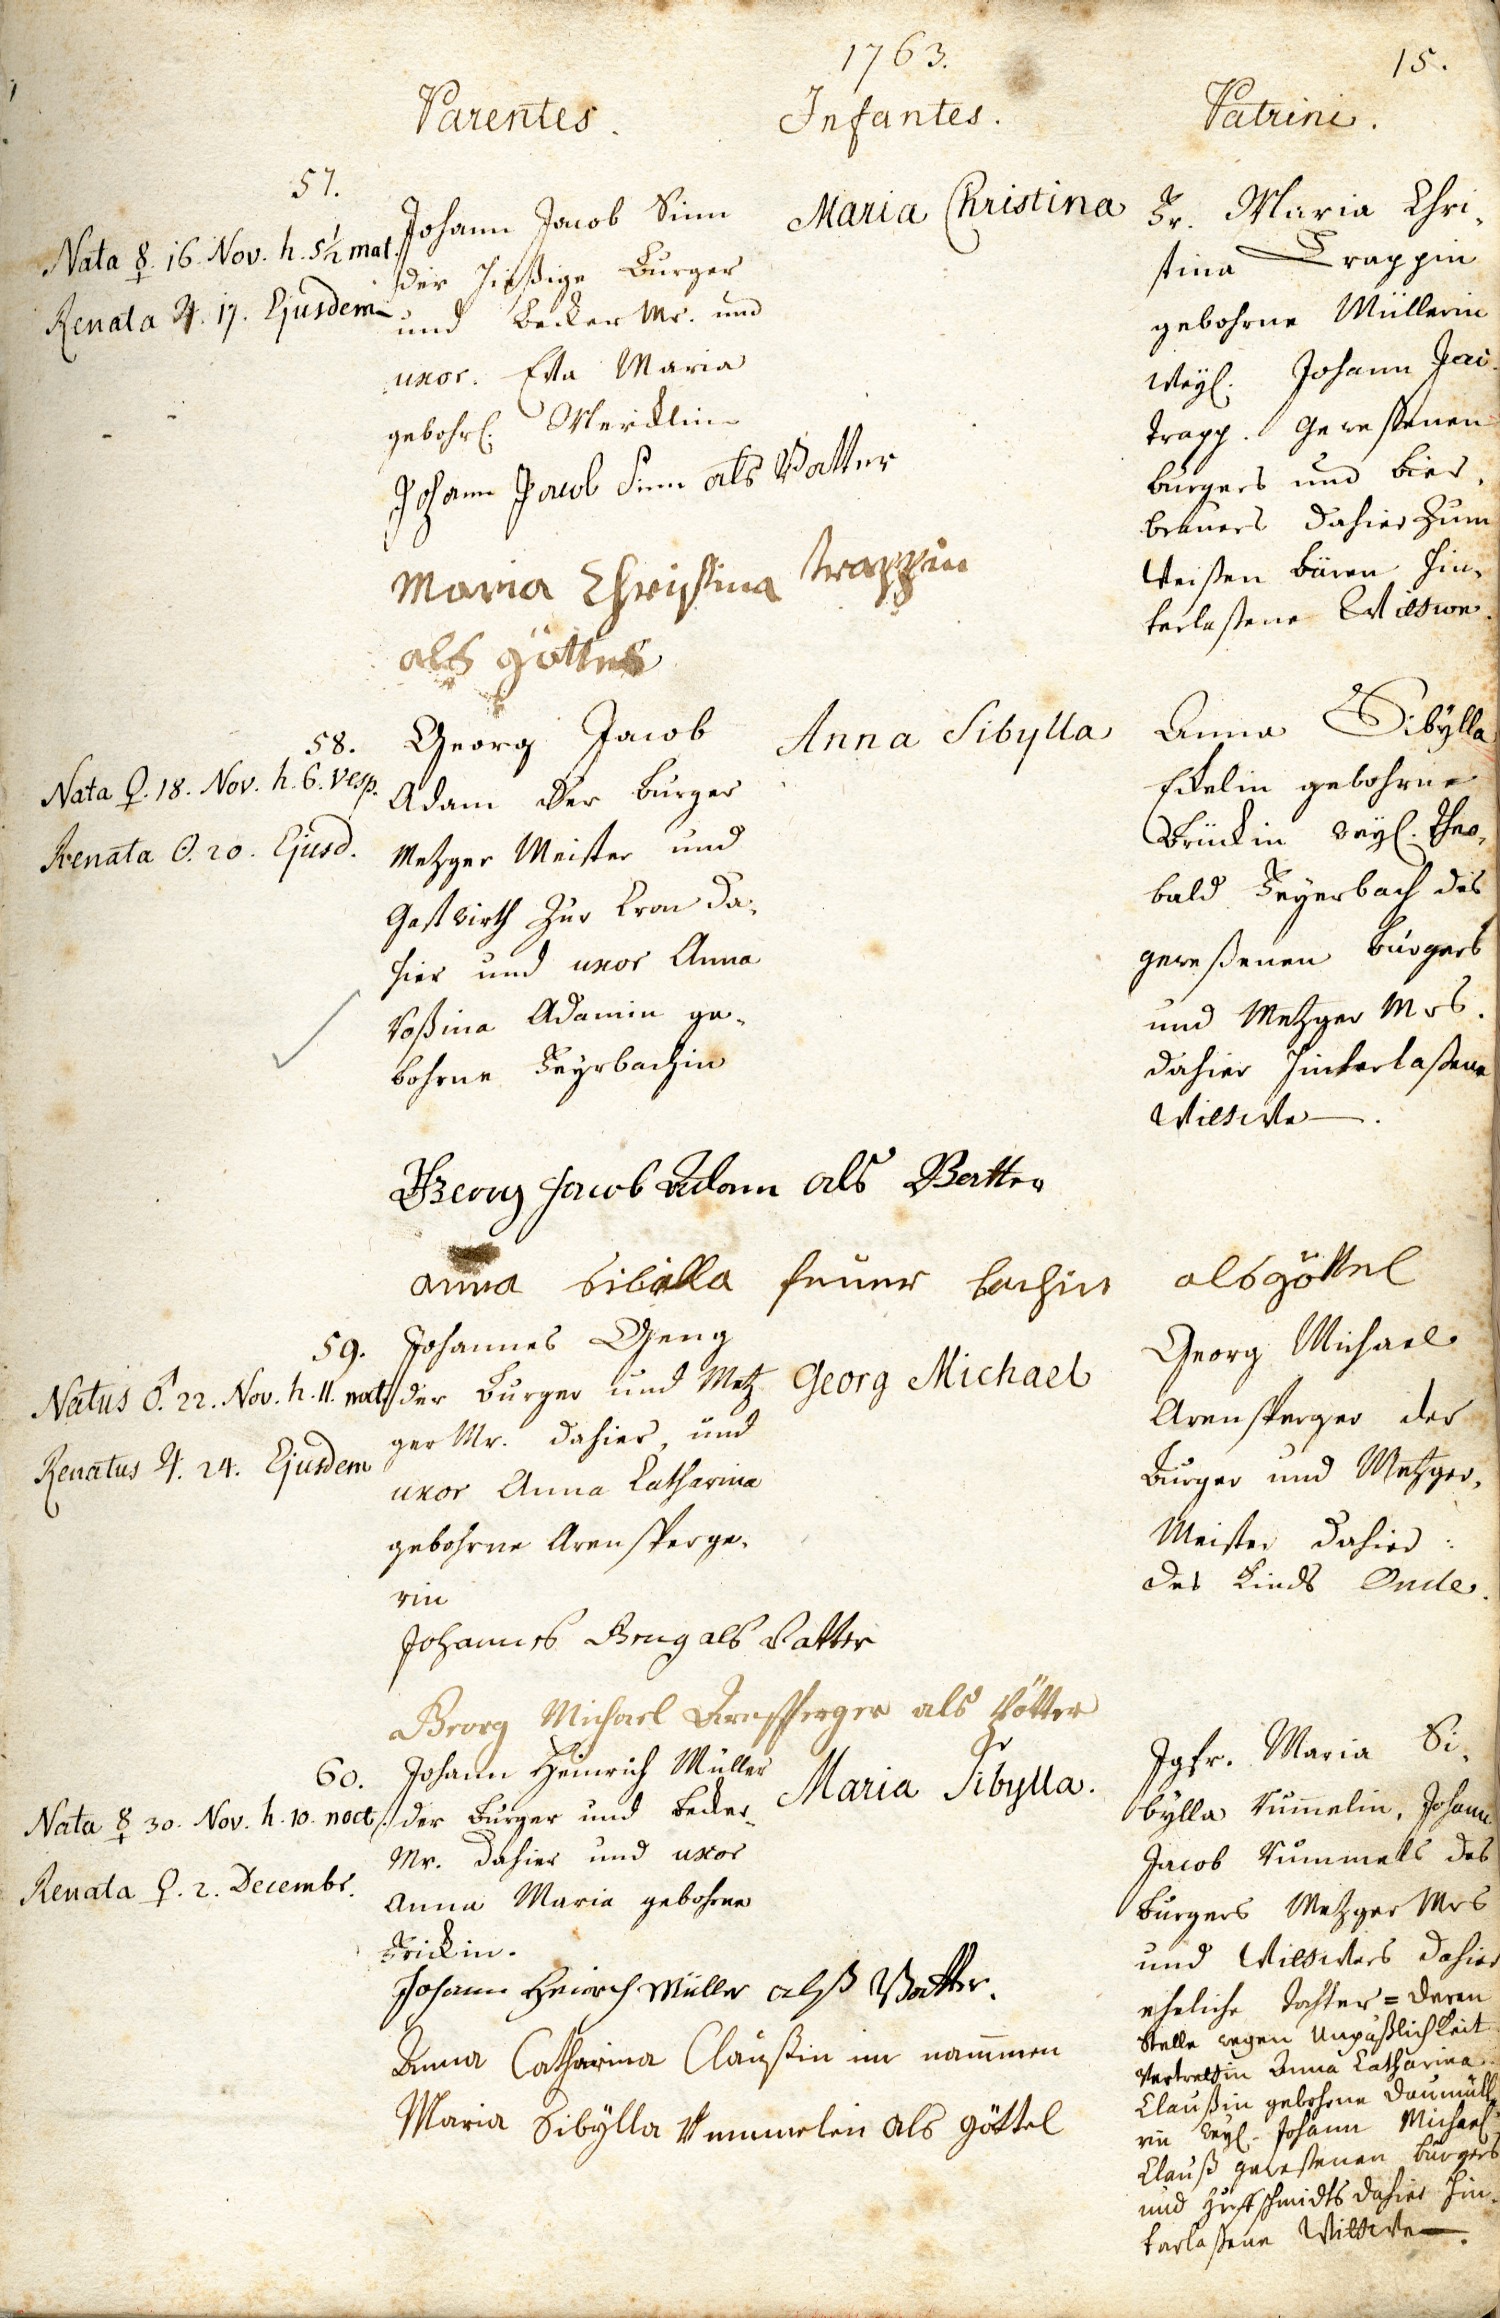 1763.
15.
Parentes. Infantes. Patrini.
57.
Nata ☿. 16. Nov. h. 5½ mat.
Renata ♃. 17. Ejusdem
Johann Jacob Sinn
der hießige Burger
und Becker Mr. und
uxor. Eva Maria
gebohrl. Mercklin
Johann Jacob Sinn als Vatter
Maria Christina Trappin
als göttel
Maria Christina
Fr. Maria Chri-
stina Trappin
gebohrne Müllerin
weyl. Johann Jac.
Trapp. gewesenen
burgers und bier-
brauers dahier zum
weißen bären hin-
terlaßene Wittwe.
58.
Nata ♀. 18. Nov. h. 6. vesp.
Renata ☉. 20. Ejusd.
Georg Jacob
Adam der burger
Metzger Meister und
Gastwirth zur Cron da-
hier und uxor Anna
Rosina Adamin ge-
bohrne Feyrbachin
Georg Jacob Adam als Vatter
anna Sibilla feuer bachin als göttel
Anna Sibylla
Anna Sibÿlla
gebohrne
Brückin weyl. Theo-
bald Feyerbach des
geweßenen burgers
und Metzger Mrs.
dahier hinterlaßene
Wittwe.
59.
Natus ♂. 22. Nov. h. 11. noct.
Renatus ♃. 24. Ejusdem
Johannes Geng
der burger und Metz
ger Mr. dahier, und
uxor Anna Catharina
gebohrne Arensperge-
rin
Johannes Geng als Vatter
Georg Michael Arnsperger als götter
Georg Michael
Georg Michael
Arensperger der
burger und Metzger-
Meister dahier:
des Kinds Oncle.
60.
Nata ☿ 30. Nov. h. 10. noct.
Renata ♀. 2. Decembr.
Johann Heinrich Müller
der burger und becker-
Mr. dahier und uxor
Anna Maria gebohrne
Frickin.
Johann Heinrch Müller alß Vatter.
Anna Catharina Claußin im nammen
Maria Sibÿlla Rummelin als göttel
Maria Sibylla.
Jgfr. Maria Si-
bylla Rum̄elin, Johann
Jacob Rummels des
burgers Metzger Mrs
und dahier
eheliche tochter = deren
Stelle wegen Unpäßlichkeit
vertrettin Anna Catharina
Claußin gebohrne Daumülle
rin weyl. Johann Michael
Clauß gewesenen burgers
und Hufschmidts dahier hin-
terlaßene Wittwe.